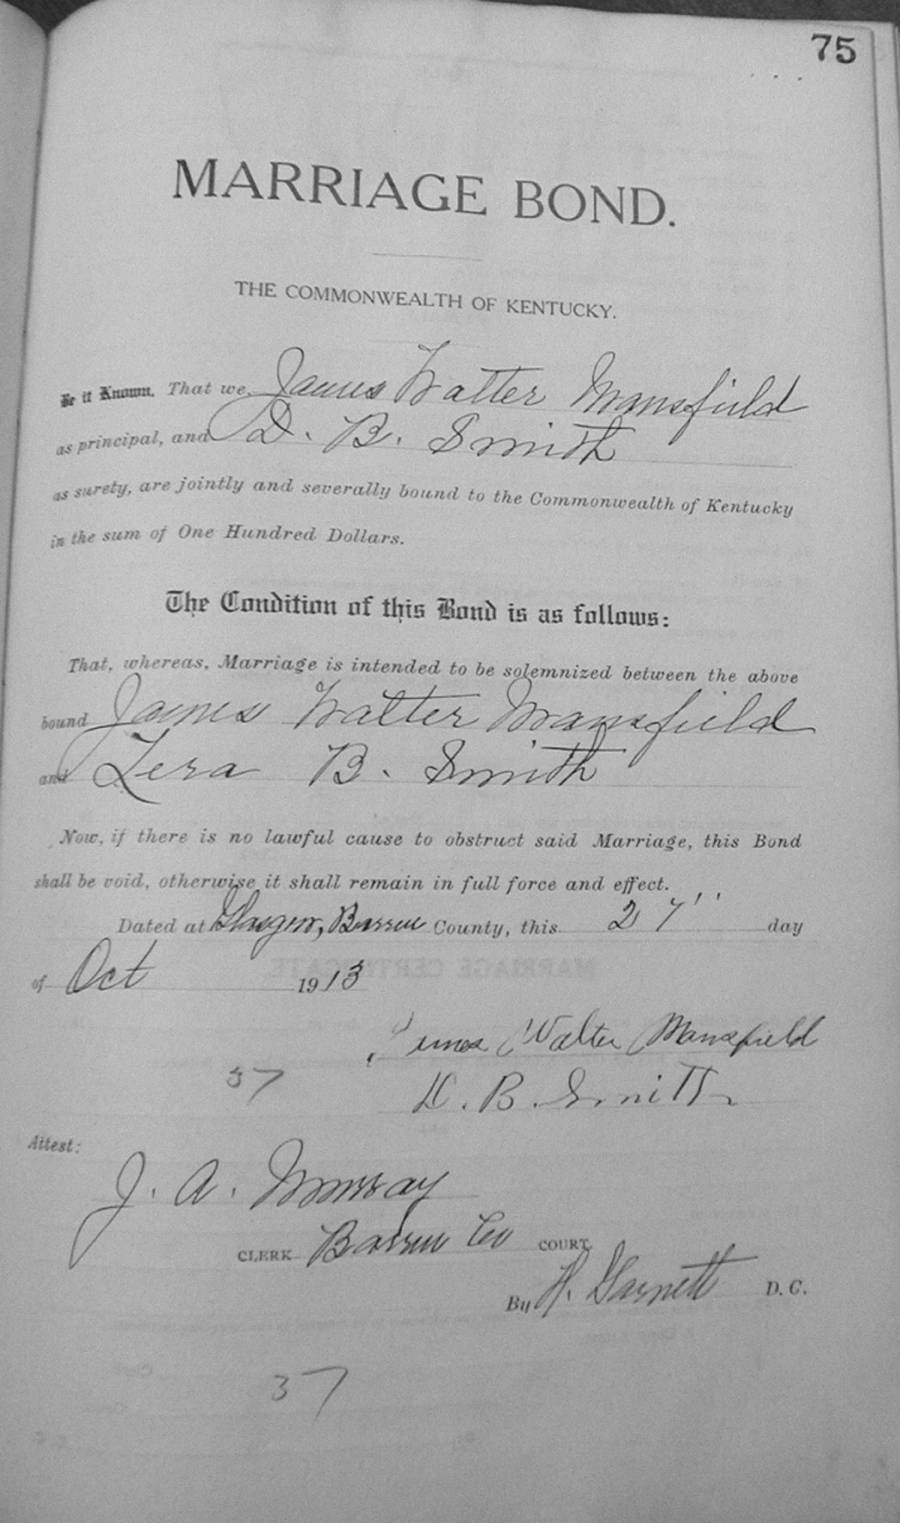 75
MARRIAGE BOND.
THE COMMONWEALTH OF KENTUCKY.
Be it Known, That we, James Walter Mansfield
as principal, and D. B. Smith
as surety, are jointly and severally bound to the Commonwealth of Kentucky
in the sum of One Hundred Dollars.
The Condition of this Bond is as follows:
That, whereas, Marriage is intended to be solemnized between the above
bound James Walter Mansfield
and Lera B. Smith
Now, if there is no lawful cause to obstruct said Marriage, this Bond
shall be void, otherwise it shall remain in full force and effect.
Dated at Glasgow, Barren County, this 27'' day
of Oct 1913
James Walter Mansfield
37
D. B. Smith
Attest:
J. A. Murray
CLERK Barren Co COURT.
By H. Garnett D. C.
37